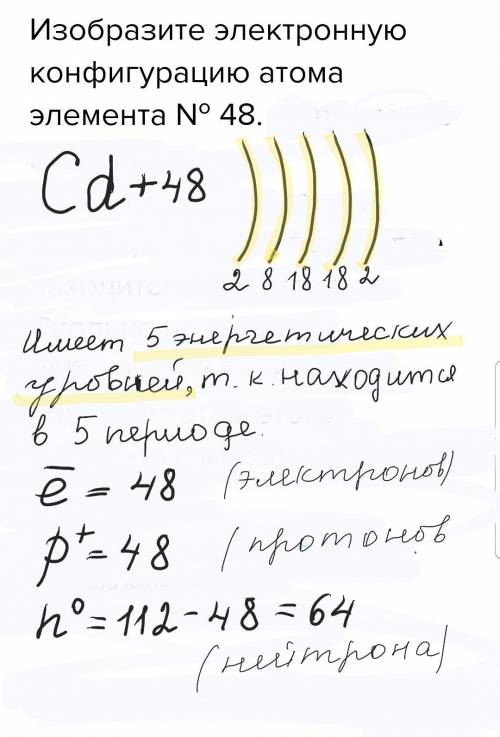 Изобразите электронную
конфигурацию атома
элемента № 48.
Cd+48
2 8 18 18 2
Имеет 5 энергетических
уровней, т. к. находится
в 5 периоде.
e̅ = 48 (электронов)
p⁺= 48 (протонов
n⁰=112-48=64
(нейтрона)